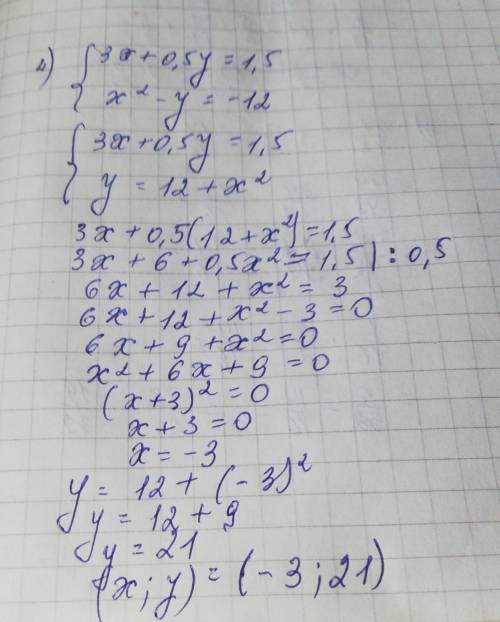 4) { 3x + 0,5y = 1,5
x² - y = -12
{ 3x + 0,5y = 1,5
y = 12 + x²
3x + 0,5(12 + x²) = 1,5
3x + 6 + 0,5x² = 1,5 | : 0,5
6x + 12 + x² = 3
6x + 12 + x² - 3 = 0
6x + 9 + x² = 0
x² + 6x + 9 = 0
(x + 3)² = 0
x + 3 = 0
x = -3
y = 12 + (-3)²
y = 12 + 9
y = 21
(x; y) = (-3; 21)